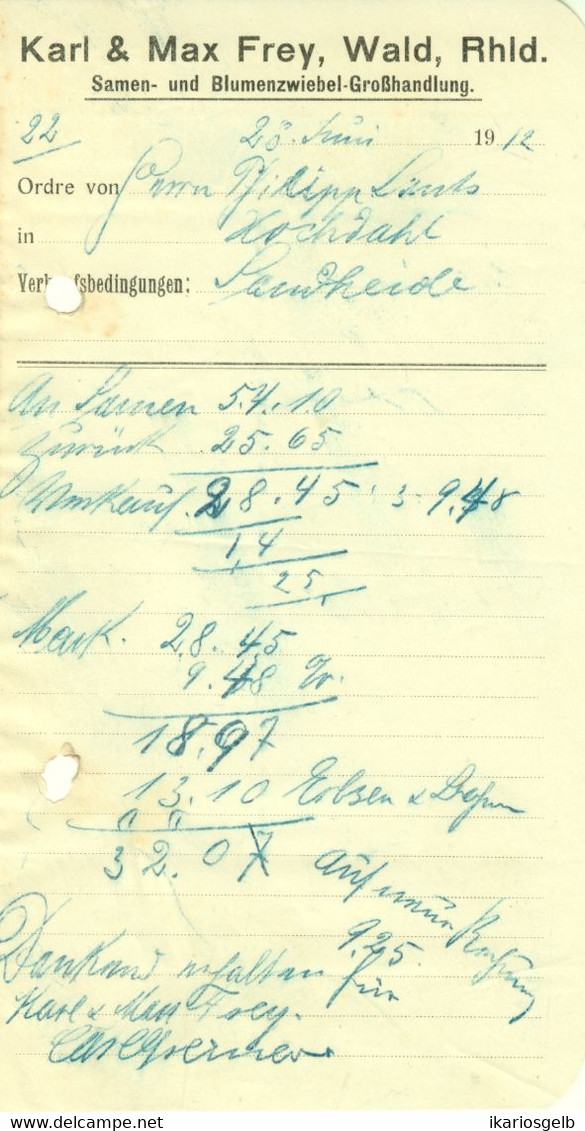 Karl & Max Frey, Wald, Rhld.
Samen- und Blumenzwiebel-Großhandlung.
22 Juni 1912
Ordre von Herrn Philipp
in Hochdahl
Verk fsbedingungen: Sandheide
An Samen 54.10
zurück 25.65
Umkauf 28.45 : 3 9.48
1,4
25
Mark. 28.45
9.48
18.97
13.10 Erbsen &
32.07
auf neue
9.25
Dankend erhalten für
Karl & Max Frey.
ikariosgelb